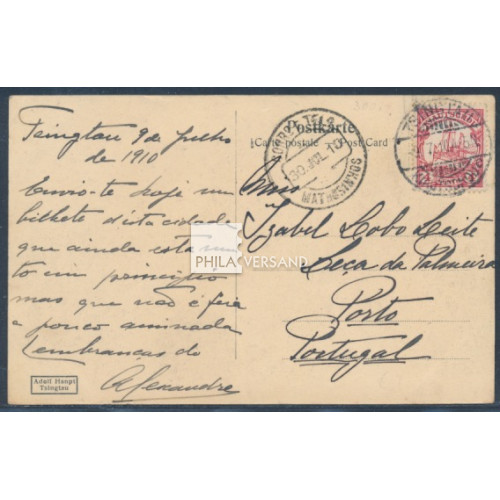 Tsingtau 9 de Julho
de 1910
Envio-te hoje um
bilhete d'esta cidade
que ainda está mui-
to em principio
mas que não é feia
e pouco animada
Lembranças do
Alexandre
Adalf Hangt
Tsingtau
Postkarte
Carte postale Post Card
CORREIO E TELS
30 JUL 10
MATHOSINHOS
TSINGTAU
Izabel Lobo Leite
Leça da Palmeira
Porto
Portugal
PHILA VERSAND